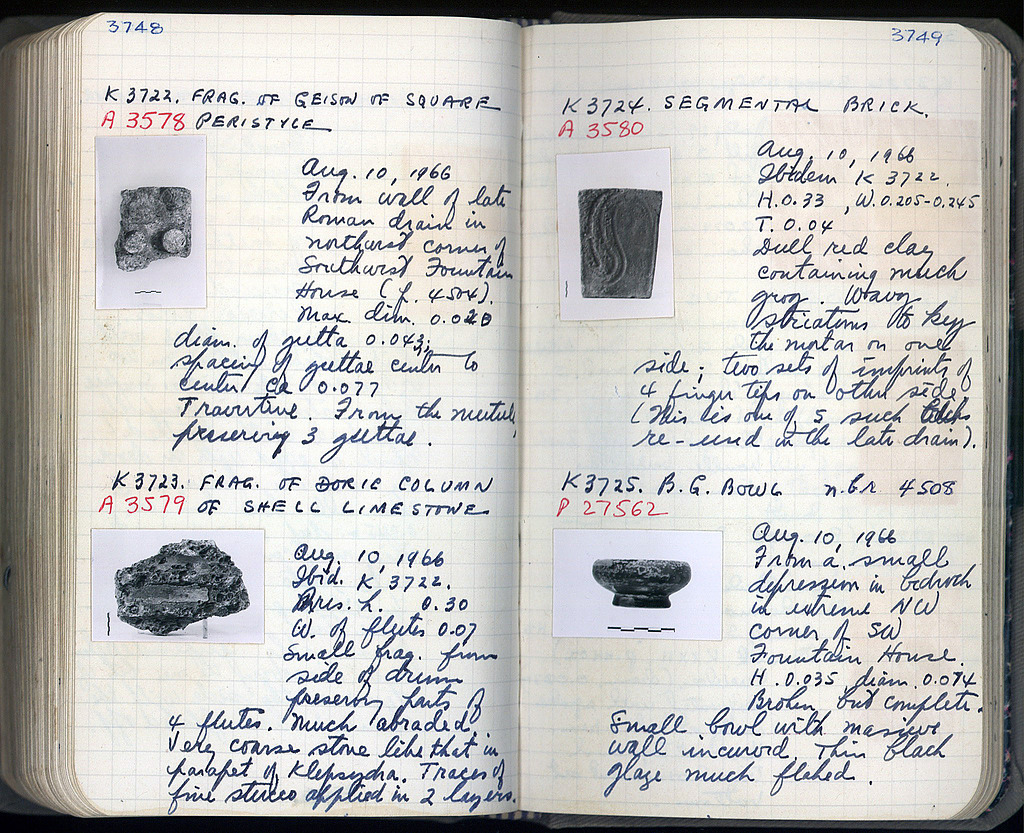 3748
K 3722. FRAG. OF GEISON OF SQUARE
A 3578 PERISTYLE
Aug. 10, 1966
From wall of late
Roman drain in
northwest corner of
Southwest Fountain
House (p. 4504).
Max. dim.
diam. of gutta 0.043;
spacing of guttae center to
center ca 0.077
Travertine. From the mutule,
preserving 3 guttae.
K 3723. FRAG. OF DORIC COLUMN
A 3579 OF SHELL LIMESTONE
Aug. 10, 1966
Ibid. K 3722.
Pres. h. 0.30
W. of flutes 0.07
Small frag. from
side of drum
preserving parts of
4 flutes. Much abraded.
Very coarse stone like that in
parapet of Klepsydra. Traces of
fine stucco applied in 2 layers.
3749
K 3724. SEGMENTAL BRICK.
A 3580
Aug. 10, 1966
Ibidem K 3722.
H. 0.33, W. 0.205-0.245
T. 0.04
Dull red clay
containing much
grog. Wavy
striations to key
the mortar on one
side; two sets of imprints of
4 finger tips on other side.
(This is one of 5 such
re-used in the late drain).
K3725. B.G. BOWL n.br 4508
P 27562
Aug. 10, 1966
From a small
depression in bedrock
in extreme NW
corner of SW
Fountain House.
H. 0.035, diam. 0.074
Broken but complete.
Small bowl with massive
wall incurved. Thin black
glaze much flaked.